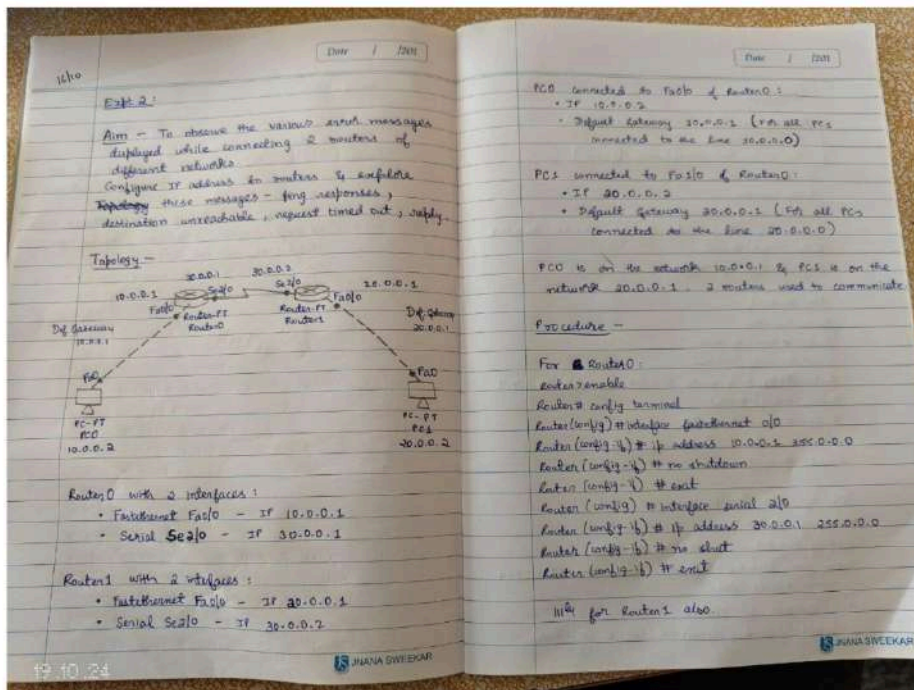 16/10
Date / /201
Expt 2:
Aim - To observe the various error messages
displayed while connecting 2 routers of
different networks
Configure IP address to routers & explore
Topology these messages - ping responses,
destination unreachable, request timed out, reply.
Topology -
30.0.0.1 30.0.0.2
10.0.0.1 Se2/0 Se2/0 20.0.0.1
Fa0/0 Fa0/0
Router-PT Router-PT
Router0 Router1
Def Gateway
10.0.0.1
Def Gateway
20.0.0.1
Fa0 Fa0
PC-PT PC-PT
PC0 PC1
10.0.0.2 20.0.0.2
Router0 with 2 interfaces:
• Fastethernet Fa0/0 - IP 10.0.0.1
• Serial Se2/0 - IP 30.0.0.1
Router1 with 2 interfaces:
• Fastethernet Fa0/0 - IP 20.0.0.1
• Serial Se2/0 - IP 30.0.0.2
JNANA SWEEKAR
19.10.24
Date / /201
PC0 connected to Fa0/0 of Router0:
• IP 10.0.0.2
• Default Gateway 10.0.0.1 (For all PCs
connected to the line 10.0.0.0)
PC1 connected to Fa1/0 of Router0:
• IP 20.0.0.2
• Default Gateway 20.0.0.1 (For all PCs
connected to the line 20.0.0.0)
PC0 is on the network 10.0.0.1 & PC1 is on the
network 20.0.0.1. 2 routers used to communicate
Procedure -
For Router0:
Router>enable
Router# config terminal
Router(config)#interface fastethernet 0/0
Router(config-if)# ip address 10.0.0.1 255.0.0.0
Router (config-if) # no shutdown
Router (config-if) # exit
Router (config) # interface serial 2/0
Router (config-if) # ip address 30.0.0.1 255.0.0.0
Router (config-if) # no shut
Router (config-if) # exit
lllly for Router1 also.
JNANA SWEEKAR